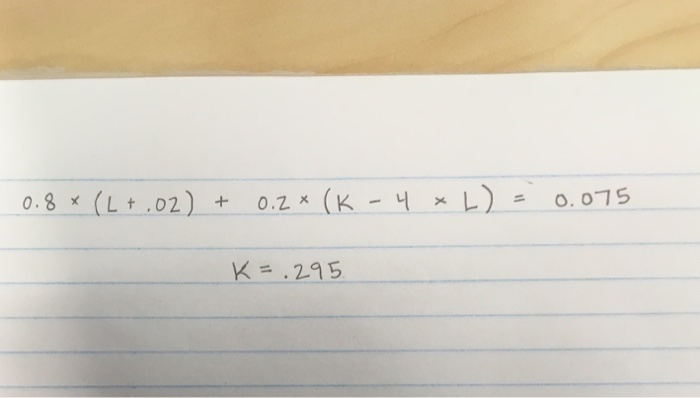 0.8 × (L + .02) + 0.2 × (K - 4 × L) = 0.075
K = .295